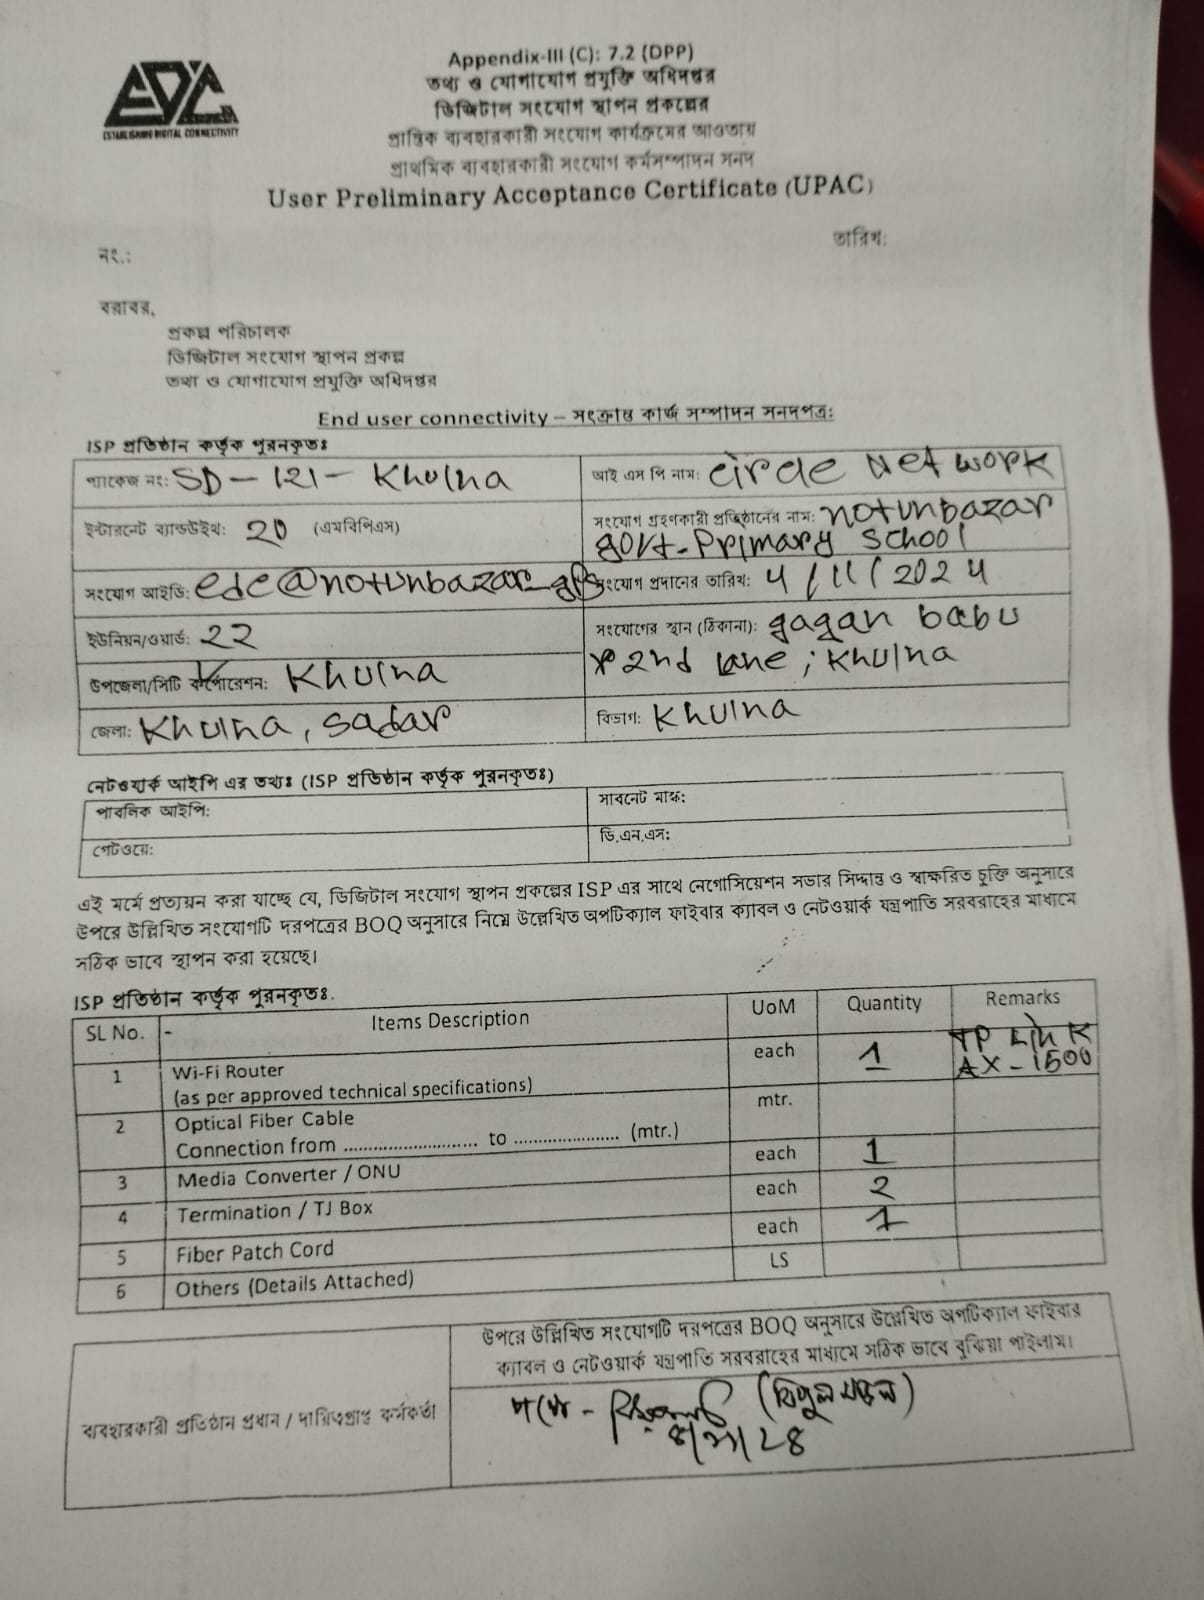 Appendix-III (C): 7.2 (DPP)
তথ্য ও যোগাযোগ প্রযুক্তি অধিদপ্তর
ডিজিটাল সংযোগ স্থাপন প্রকল্পের
প্রান্তিক ব্যবহারকারী সংযোগ কার্যক্রমের আওতায়
প্রাথমিক ব্যবহারকারী সংযোগ কর্মসম্পাদন সনদ
User Preliminary Acceptance Certificate (UPAC)
EDC
ESTABLISHING DIGITAL CONNECTIVITY
তারিখ:
নং.:
বরাবর,
প্রকল্প পরিচালক
ডিজিটাল সংযোগ স্থাপন প্রকল্প
তথ্য ও যোগাযোগ প্রযুক্তি অধিদপ্তর
End user connectivity – সংক্রান্ত কার্জ সম্পাদন সনদপত্র:
ISP প্রতিষ্ঠান কর্তৃক পূরনকৃতঃ
প্যাকেজ নং: SD - 121 - Khulna আই এস পি নাম: Circle Network
ইন্টারনেট ব্যান্ডউইথ: 20 (এমবিপিএস) সংযোগ গ্রহণকারী প্রতিষ্ঠানের নাম: notunbazar
govt. Primary School
সংযোগ আইডি: edc@notunbazar_gps সংযোগ প্রদানের তারিখ: 4/11/2024
ইউনিয়ন/ওয়ার্ড: 22 সংযোগের স্থান (ঠিকানা): gagan babu
2nd lane, Khulna
উপজেলা/সিটি কর্পোরেশন: Khulna
জেলা: Khulna, Sadar বিভাগ: Khulna
নেটওয়ার্ক আইপি এর তথ্যঃ (ISP প্রতিষ্ঠান কর্তৃক পূরনকৃতঃ)
পাবলিক আইপি: সাবনেট মাস্ক:
গেটওয়ে: ডি.এন.এস:
এই মর্মে প্রত্যয়ন করা যাচ্ছে যে, ডিজিটাল সংযোগ স্থাপন প্রকল্পের ISP এর সাথে নেগোসিয়েশন সভার সিদ্ধান্ত ও স্বাক্ষরিত চুক্তি অনুসারে
উপরে উল্লিখিত সংযোগটি দরপত্রের BOQ অনুসারে নিম্নে উল্লেখিত অপটিক্যাল ফাইবার ক্যাবল ও নেটওয়ার্ক যন্ত্রপাতি সরবরাহের মাধ্যমে
সঠিক ভাবে স্থাপন করা হয়েছে।
ISP প্রতিষ্ঠান কর্তৃক পূরনকৃতঃ.
SL No. - Items Description UoM Quantity Remarks
1 Wi-Fi Router each 1 TP Link
(as per approved technical specifications) AX-1500
2 Optical Fiber Cable mtr.
Connection from ........................... to ...................... (mtr.)
3 Media Converter / ONU each 1
4 Termination / TJ Box each 2
5 Fiber Patch Cord each 1
6 Others (Details Attached) LS
উপরে উল্লিখিত সংযোগটি দরপত্রের BOQ অনুসারে উল্লেখিত অপটিক্যাল ফাইবার
ক্যাবল ও নেটওয়ার্ক যন্ত্রপাতি সরবরাহের মাধ্যমে সঠিক ভাবে বুঝিয়া পাইলাম।
ব্যবহারকারী প্রতিষ্ঠান প্রধান / দায়িত্বপ্রাপ্ত কর্মকর্তা
পক্ষে - (বিপুল মন্ডল)
৪/১১/২৪